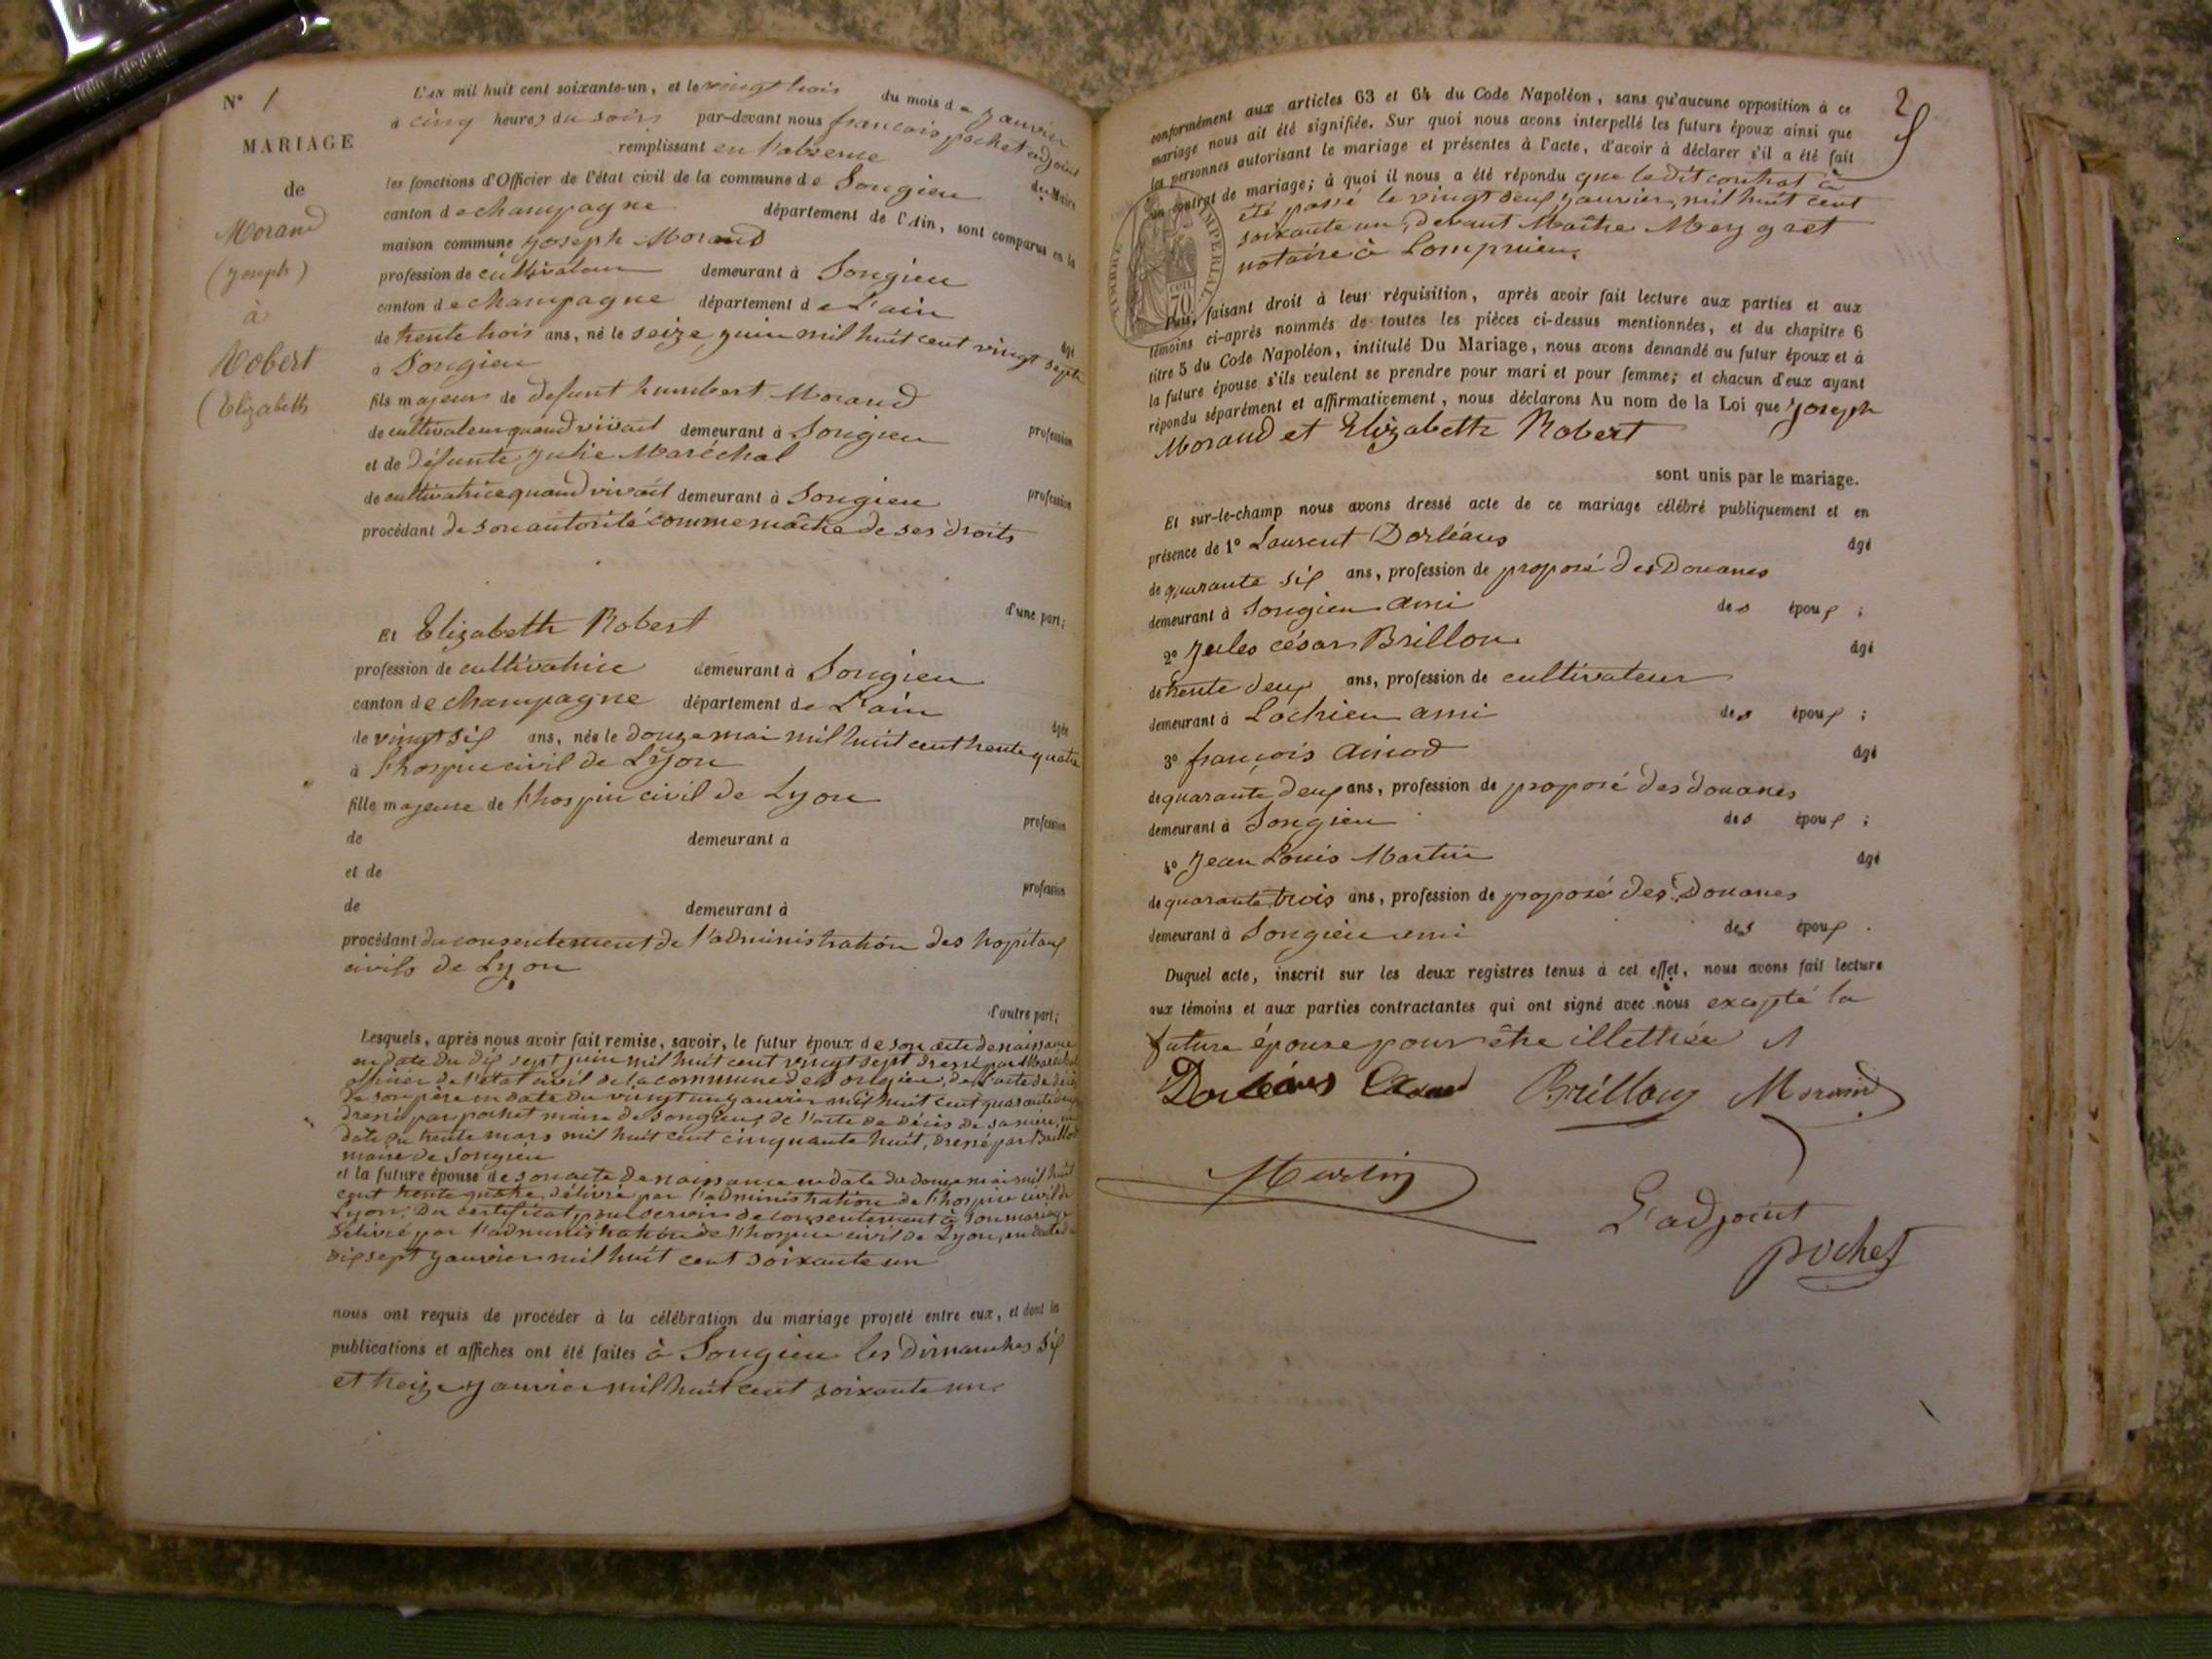 N° 1
MARIAGE
de
Morand
(joseph)
à
Robert
(Elizabeth
L'AN mil huit cent soixante-un, et le vingt trois du mois de janvier
à cinq heures du soir par-devant nous francois pochet adjoint
remplissant en l'absence du Maire
les fonctions d'Officier de l'état civil de la commune de Songieu
canton de champagne département de l'Ain, sont comparus en la
maison commune joseph Morand
profession de cultivateur demeurant à Songieu
canton de champagne département de L'ain âgé
de trente trois ans, né le seize juin mil huit cent vingt sept
à Songieu
fils majeur de defunt humbert Morand profession
de cultivateur quand vivait demeurant à Songieu
et de défunte julie Maréchal profession
de cultivatrice quand vivait demeurant à Songieu
procédant de son autorité comme maître de ses droits
d'une part;
Et Elizabeth Robert
profession de cultivatrice demeurant à Songieu
canton de champagne département de L'ain âgée
de vingt six ans, née le douze mai mil huit cent trente quatre
à l'hospice civil de Lyon
fille majeure de l'hospice civil de Lyon profession
de demeurant à
et de profession
de demeurant à
procédant du consentement de l'administration des hopitaux
civils de Lyon
d'autre part;
Lesquels, après nous avoir fait remise, savoir, le futur époux de son acte de naissance
en date du dix sept juin mil huit cent vingt sept dressé par Maréchal
officier de l'état civil de la commune de Songieu, de l'acte de décès
de son père en date du vingt un janvier mil huit cent quarante deux
dressé par pochet maire de songieu, de l'acte de décès de sa mère en
date du trente mars mil huit cent cinquante huit, dressé par Brillon
maire de Songieu
et la future épouse de son acte de naissance en date du douze mai mil huit
cent trente quatre, délivré par l'administration de l'hospice civil de
Lyon; Du certificat pour servir de consentement à son mariage
délivré par l'administration de l'hospice civil de Lyon, en date du
dix sept janvier mil huit cent soixante un
nous ont requis de procéder à la célébration du mariage projeté entre eux, et dont les
publications et affiches ont été faites à Songieu les dimanches six
et treize janvier mil huit cent soixante un
2
conformément aux articles 63 et 64 du Code Napoléon, sans qu'aucune opposition à ce
mariage nous ait été signifiée. Sur quoi nous avons interpellé les futurs époux ainsi que
les personnes autorisant le mariage et présentes à l'acte, d'avoir à déclarer s'il a été fait
un contrat de mariage; à quoi il nous a été répondu que ledit contrat à
été passé le vingt deux janvier, mil huit cent
soixante un, devant Maître Meygret
notaire à Lompnieu.
TIMBRE IMPERIAL
70
Puis, faisant droit à leur réquisition, après avoir fait lecture aux parties et aux
témoins ci-après nommés de toutes les pièces ci-dessus mentionnées, et du chapitre 6
titre 5 du Code Napoléon, intitulé Du Mariage, nous avons demandé au futur époux et à
la future épouse s'ils veulent se prendre pour mari et pour femme; et chacun d'eux ayant
répondu séparément et affirmativement, nous déclarons Au nom de la Loi que joseph
Morand et Elizabeth Robert
sont unis par le mariage.
Et sur-le-champ nous avons dressé acte de ce mariage célébré publiquement et en
présence de 1° Laurent Dorléans âgé
de quarante six ans, profession de préposé des Douanes
demeurant à Songieu ami des époux;
2° Jules césar Brillon âgé
de trente deux ans, profession de cultivateur
demeurant à Lochieu ami des époux;
3° françois âgé
de quarante deux ans, profession de préposé des douanes
demeurant à Songieu des époux;
4° Jean Louis Martin âgé
de quarante trois ans, profession de préposé des Douanes
demeurant à Songieu ami des époux.
Duquel acte, inscrit sur les deux registres tenus à cet effet, nous avons fait lecture
aux témoins et aux parties contractantes qui ont signé avec nous excepté la
future épouse pour être illettrée
Dorléans Brillon Morand
Martin
L'adjoint
pochet